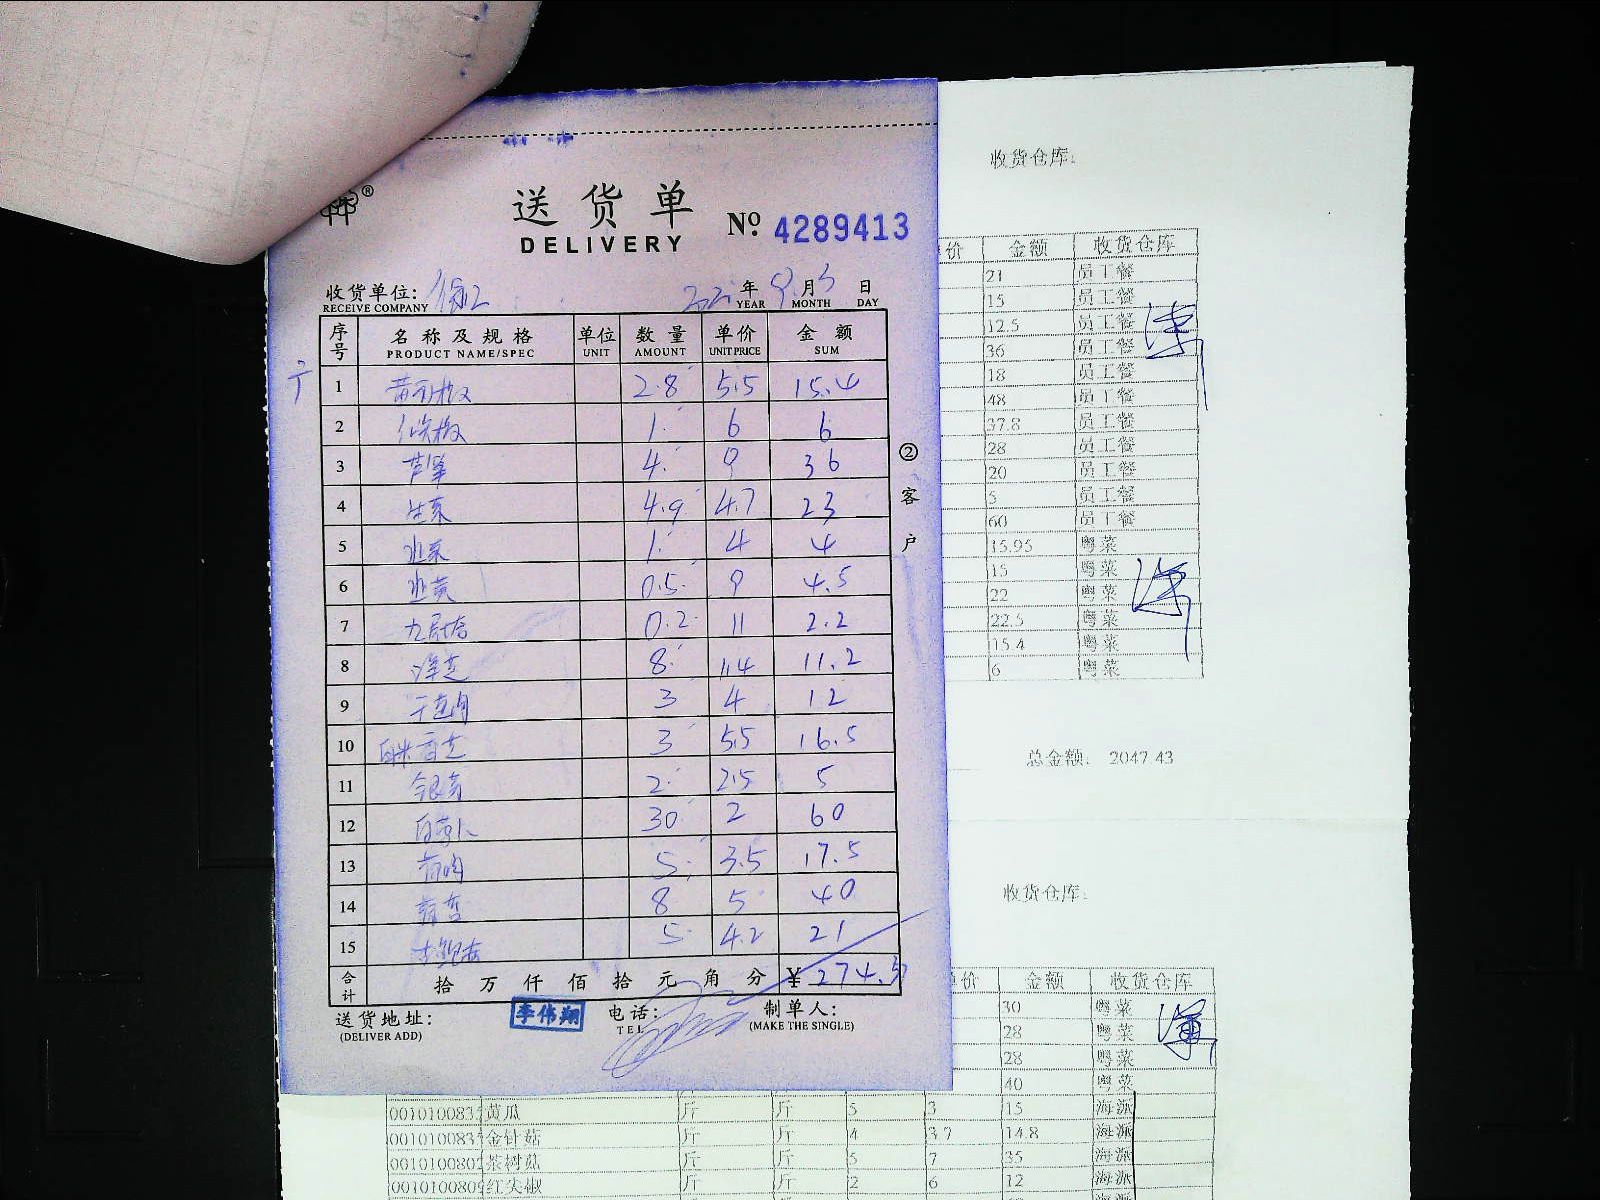 送货单
DELIVERY
Nº 4289413
收货单位:
RECEIVE COMPANY
年 9 月 3 日
YEAR MONTH DAY
序号 名称及规格 单位 数量 单价 金额
PRODUCT NAME/SPEC UNIT AMOUNT UNIT PRICE SUM
1 2.8 5.5 15.4
2 1 6 6
3 芦笋 4 9 36
4 生菜 4.9 4.7 23
5 韭菜 1 4 4
6 韭黄 0.5 9 4.5
7 九层塔 0.2 11 2.2
8 洋芝 8 1.4 11.2
9 3 4 12
10 3 5.5 16.5
11 银芽 2 2.5 5
12 白萝卜 30 2 60
13 5 3.5 17.5
14 8 5 40
15 5 4.2 21
合计 拾 万 仟 佰 拾 元 角 分 ¥ 274.3
② 客户
送货地址:
(DELIVER ADD)
李伟翔
电话:
TEL
制单人:
(MAKE THE SINGLE)
收货仓库:
价 金额 收货仓库
21 员工餐
15 员工餐
12.5 员工餐
36 员工餐
18 员工餐
48 员工餐
37.8 员工餐
28 员工餐
20 员工餐
5 员工餐
60 员工餐
15.95 粤菜
15 粤菜
22 粤菜
22.5 粤菜
15.4 粤菜
6 粤菜
总金额: 2047.43
收货仓库:
价 金额 收货仓库
30 粤菜
28 粤菜
28 粤菜
40 粤菜
黄瓜 斤 斤 5 3 15 海派
金针菇 斤 斤 4 3.7 14.8 海派
茶树菇 斤 斤 5 7 35 海派
红尖椒 斤 斤 2 6 12 海派